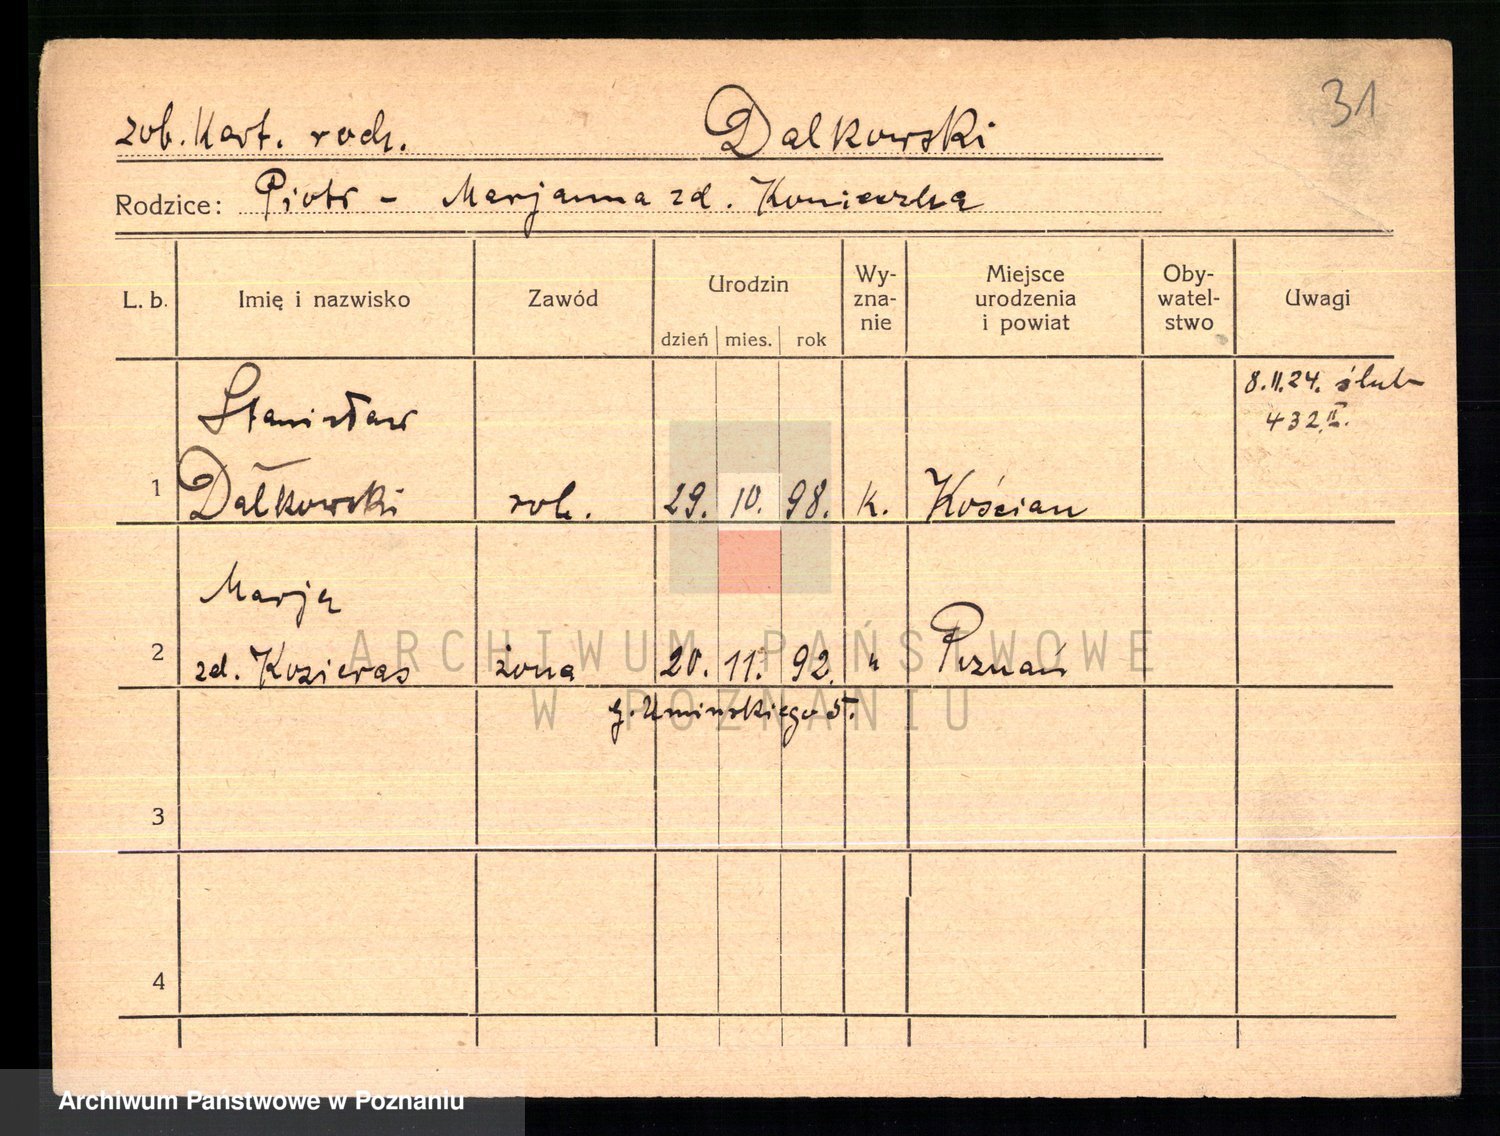 31
zob. Kart. rodz. Dalkowski
Rodzice: Piotr - Marjanna zd. Konieczka
L. b. Imię i nazwisko Zawód Urodzin dzień mies. rok Wy-zna-nie Miejsce urodzenia i powiat Oby-watel-stwo Uwagi
8.II.24. ślub
Stanisław 432 II.
1 Dalkowski rob. 29. 10. 98. k. Kościan
Marja
2 zd. Kozieras żona 20. 11. 92. " Poznań
g. Umińskiego 5.
3
4
ARCHIWUM PAŃSTWOWE
W POZNANIU
Archiwum Państwowe w Poznaniu